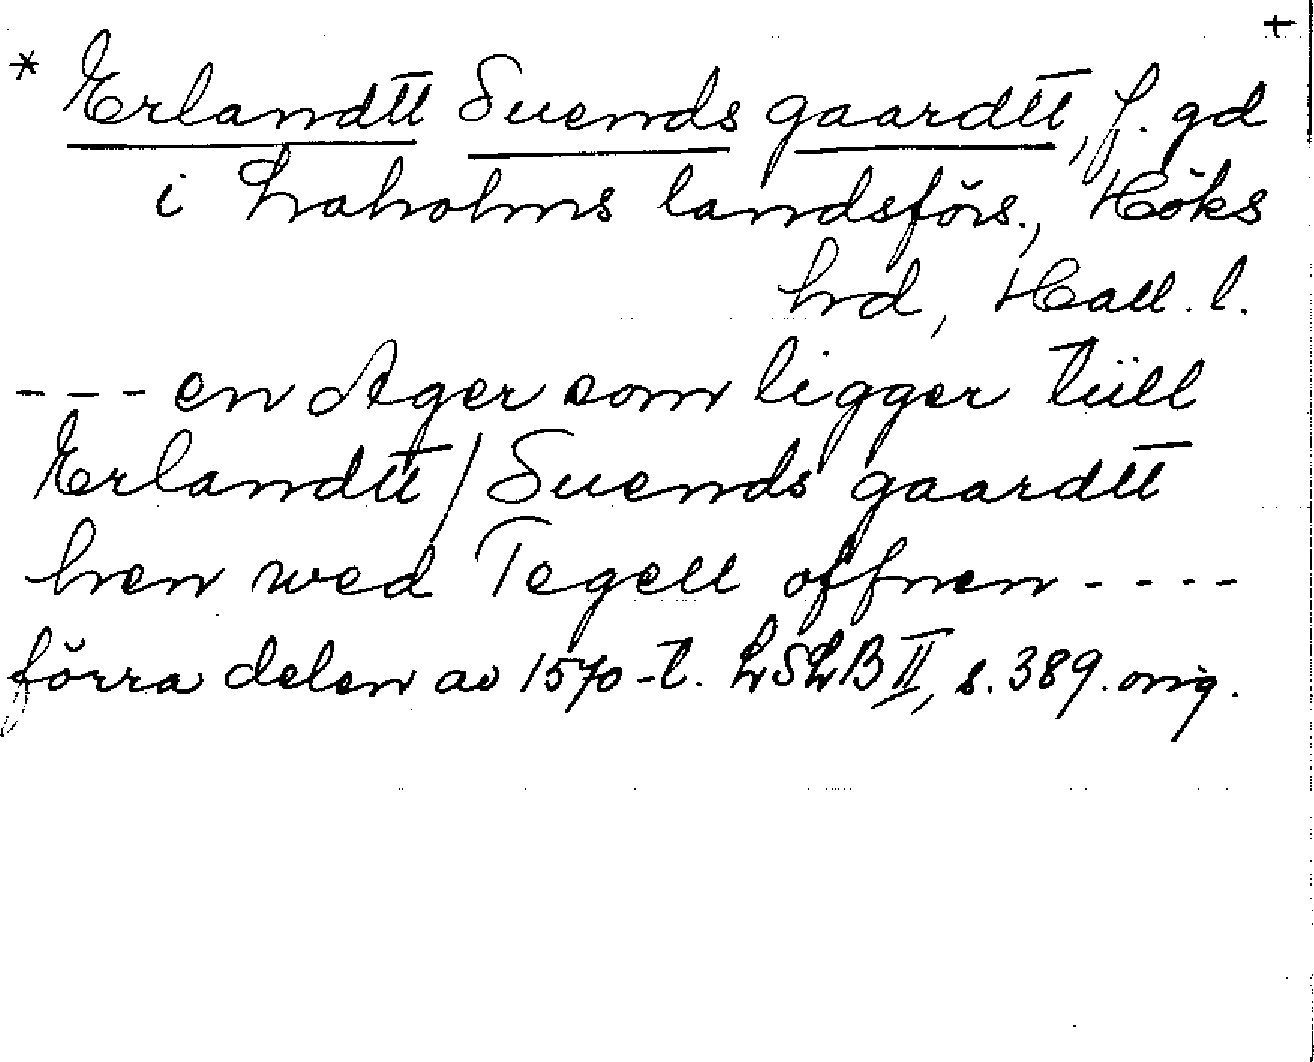 +
* Erlandtt Suends gaardtt, f. gd
i Laholms landsförs., Höks
hd, Hall. l.
--- en Ager som ligger tiill
Erlandtt / Suends gaardtt
hen wed Tegell offnen ----
förra delen av 1570-t. LSLB II, s. 389. orig.